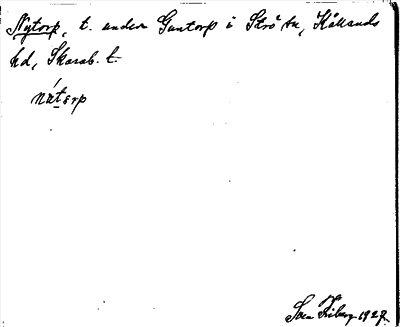 Nytorp, t. under Guntorp i Strö sn, Kållands
hd, Skarab. l.
nýtɷrp
Sven Friberg 1927.